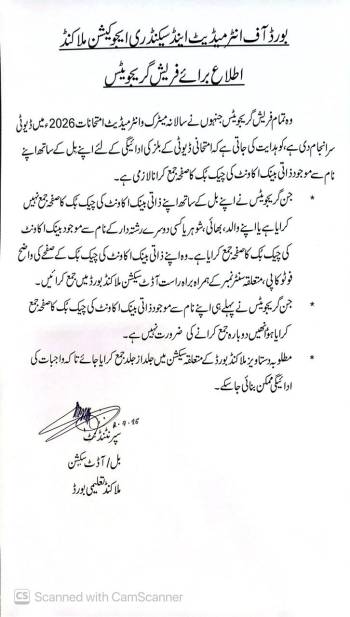 بورڈ آف انٹرمیڈیٹ اینڈ سیکنڈری ایجوکیشن ملاکنڈ
اطلاع برائے فریش گریجویٹس
وہ تمام فریش گریجویٹس جنہوں نے سالانہ میٹرک و انٹرمیڈیٹ امتحانات 2026ء میں ڈیوٹی
سرانجام دی ہے، کو ہدایت کی جاتی ہے کہ امتحانی ڈیوٹی کے بلز کی ادائیگی کے لئے اپنے بل کے ساتھ اپنے
نام سے موجود ذاتی بینک اکاونٹ کی چیک بک کا صفحہ جمع کرانا لازمی ہے۔
* جن گریجویٹس نے اپنے بل کے ساتھ اپنے ذاتی بینک اکاونٹ کی چیک بک کا صفحہ جمع نہیں
کرایا ہے یا اپنے والد، بھائی، شوہر یا کسی دوسرے رشتہ دار کے نام سے موجود بینک اکاونٹ
کی چیک بک کا صفحہ جمع کرایا ہے۔ وہ اپنے ذاتی بینک اکاونٹ کی چیک بک کے صفحے کی واضح
فوٹو کاپی، متعلقہ سنٹر نمبر کے ہمراہ براہ راست آڈٹ سیکشن ملاکنڈ بورڈ میں جمع کرائیں۔
* جن گریجویٹس نے پہلے ہی اپنے نام سے موجود ذاتی بینک اکاونٹ کی چیک بک کا صفحہ جمع
کرایا ہو انھیں دوبارہ جمع کرانے کی ضرورت نہیں ہے۔
* مطلوبہ دستاویز ملاکنڈ بورڈ کے متعلقہ سیکشن میں جلد از جلد جمع کرایا جائے تاکہ واجبات کی
ادائیگی ممکن بنائی جا سکے۔
سپرنٹنڈنٹ
بل / آڈٹ سیکشن
ملاکنڈ تعلیمی بورڈ
CS Scanned with CamScanner